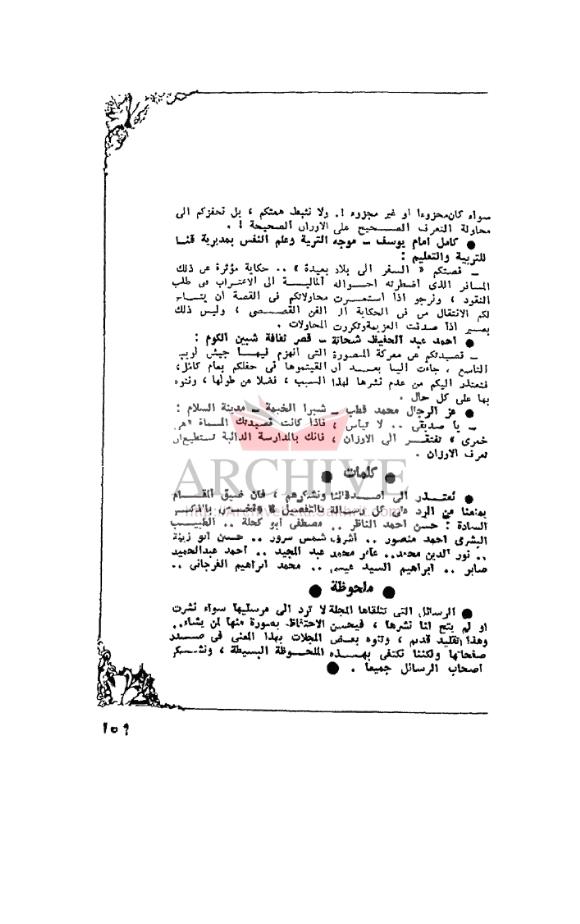 سواء كان مجزوءا او غير مجزوء ! . ولا نثبط همتكم ، بل نحفزكم الى
محاولة التعرف الصحيح على الاوزان الصحيحة ! .
● كامل امام يوسف – موجه التربية وعلم النفس بمديرية قنا
للتربية والتعليم :
– قصتكم « السفر الى بلاد بعيدة » .. حكاية مؤثرة عن ذلك
المسافر الذى اضطرته احواله المالية الى الاغتراب فى طلب
النقود ، ونرجو اذا استمرت محاولاتكم فى القصة ان يتساح
لكم الانتقال من فى الحكاية الى الفن القصصى ، وليس ذلك
بعسير اذا صدقت العزيمة وتكررت المحاولات .
● احمد عبد الحفيظ شحاتة – قصر ثقافة شبين الكوم :
– قصيدتكم عن معركة المنصورة التى انهزم فيها جيش لويس
التاسع ، جاءت الينا بعد ان القيتموها فى حفلكم بعام كامل،
فنعتذر اليكم من عدم نشرها لهذا السبب ، فضلا عن طولها ، وننوه
بها على كل حال .
● عز الرجال محمد قطب – شبرا الخيمة – مدينة السلام :
– يا صديقى .. لا تيأس ، فاذا كانت قصيدتك المسماة «هى
خمرى » تفتقر الى الاوزان ، فانك بالمدارسة الدائبة تستطيع ان
تعرف الاوزان .
● كلمات ●
● نعتذر الى اصدقائنا ونشكرهم ، فان ضيق المقام
يمنعنا من الرد على كل رسالة بالتفصيل ، ونخص بالذكر
السادة : حسن احمد الناظر .. مصطفى ابو كحلة .. الطبيب
البشرى احمد منصور .. اشرف شمس سرور .. حسن ابو زينة
.. نور الدين محمد.. عامر محمد عبد المجيد .. احمد عبدالحميد
صابر .. ابراهيم السيد عيسى .. محمد ابراهيم الفرجانى ..
● ملحوظة ●
● الرسائل التى تتلقاها المجلة لا ترد الى مرسليها سواء نشرت
او لم يتح لنا نشرها ، فيحسن الاحتفاظ بصورة منها لمن يشاء..
وهذا تقليد قديم ، وتنوه بعض المجلات بهذا المعنى فى صدر
صفحاتها ولكننا نكتفى بهذه الملحوظة البسيطة ، ونشكر
اصحاب الرسائل جميعا . ●
ARCHIVE
١٥٩